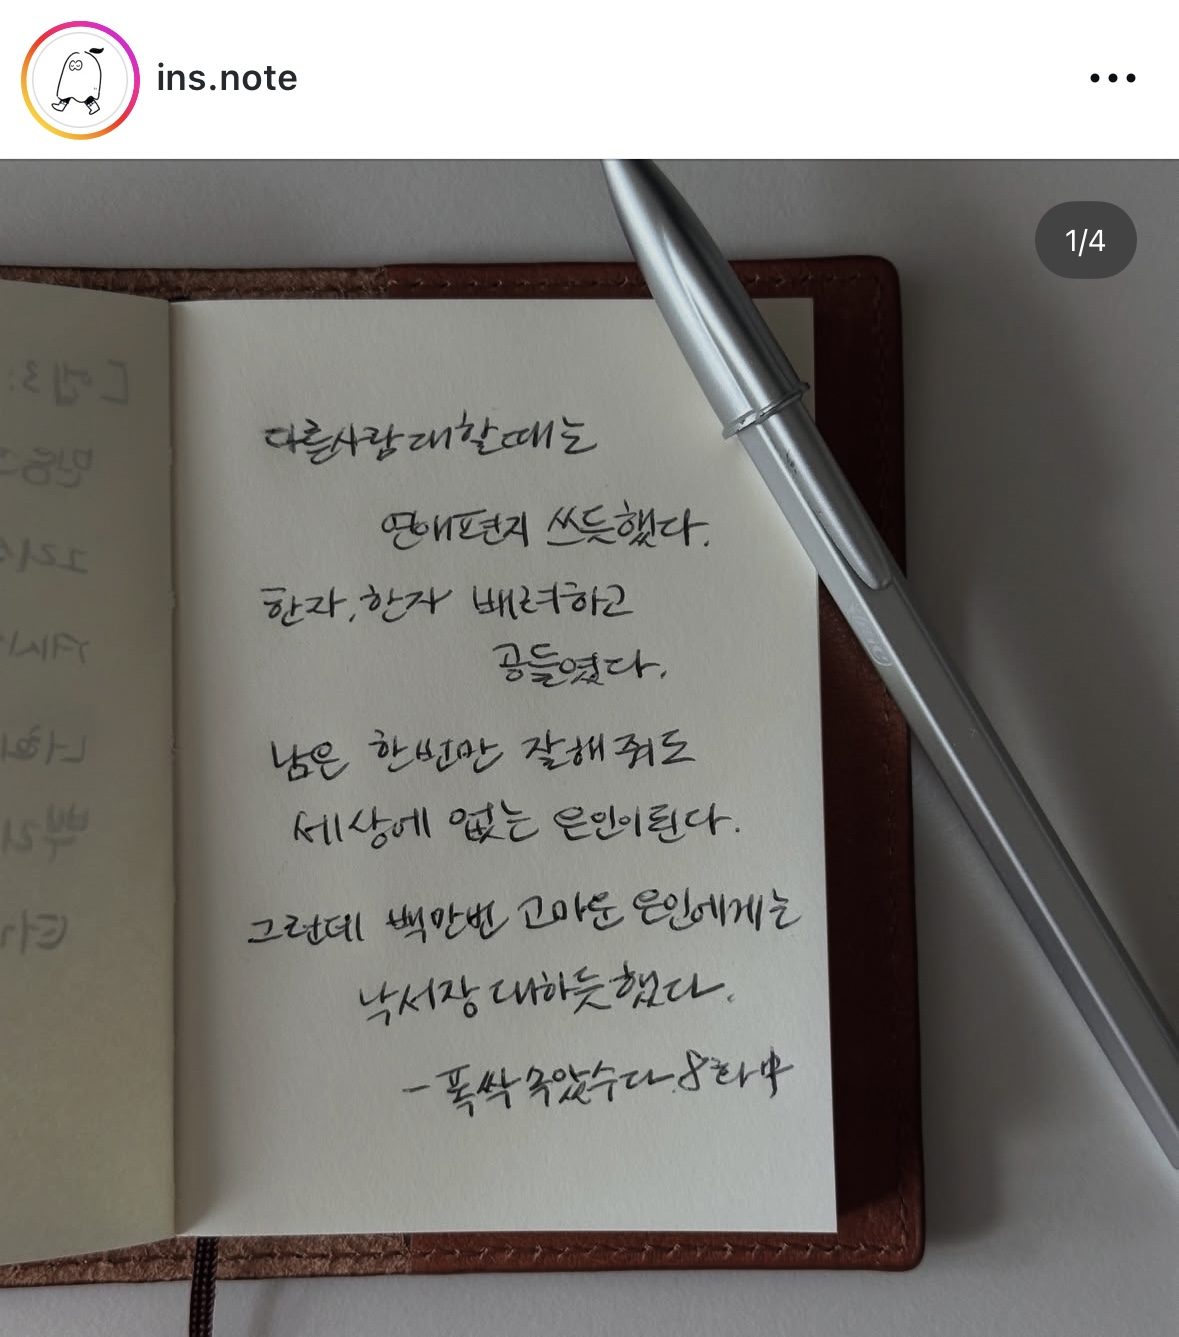 ins.note
1/4
다른사람 대할때는
연애편지 쓰듯했다.
한자, 한자 배려하고
공들였다.
남은 한번만 잘해줘도
세상에 없는 은인이된다.
그런데 백만번 고마운 은인에게는
낙서장 대하듯했다.
- 폭싹 속았수다. 8화 中